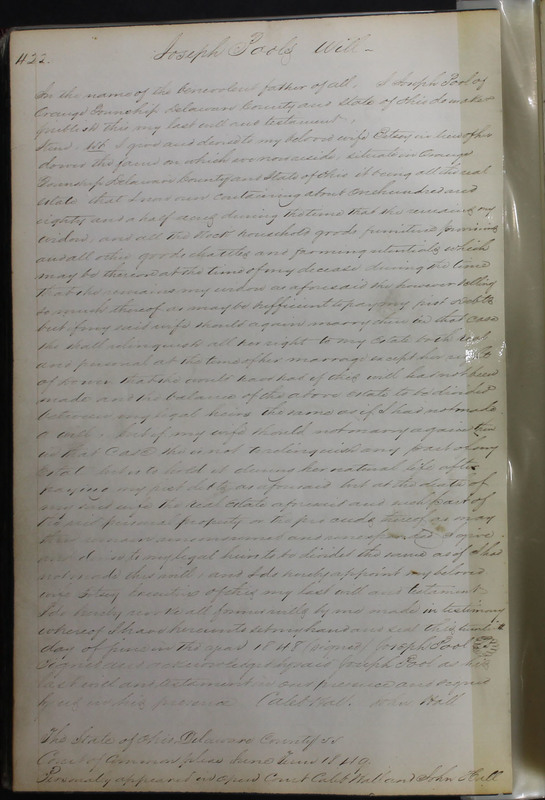 422.
Joseph Pools Will —
In the name of the Benevolent father of all. I Joseph Pool of
Orange Township Delaware County and State of Ohio do make &
publish this my last will and testament.
Item 1st I give and devise to my beloved wife Betsy in lieu of her
dower the farm on which we now reside, situate in Orange
Township Delaware County and State of Ohio it being all the real
estate that I now own containing about one hundred and
eighty and a half acres during the time that she remains my
widow, and all the stock household goods, furniture,
and all other goods chattles and farming utentials which
may be thereon at the time of my decease during the time
that she remains my widow as aforesaid she however selling
so much thereof as may be sufficient to pay my just debts
but if my said wife should again marry then in that case
she shall relinquish all her right to my estate both real
and personal at the time of her marriage except her right
of dower that she would have had if this will had not been
made and the balance of the above estate to be divided
between my legal heirs the same as if I had not made
a will. But if my wife should not marry again then
in that case she is not to relinquish any part of my
estate but is to hold it during her natural life after
paying my just debts as aforesaid but at the death of
my said wife the real estate aforesaid and such part of
the said personal property or the proceeds thereof as may
then remain unconsumed and unexpended I give
and devise to my legal heirs to be divided the same as if I had
not made this will, and I do hereby appoint my beloved
wife Betsy Executrix of this my last will and testament
I do hereby revoke all former wills by me made in testimony
whereof I have hereunto set my hand and seal this
day of June in the year 1848 (signed) Joseph Pool
Signed and acknowledged by said Joseph Pool as his
last will and testament in our presence and signed
by us in his presence Caleb Hall. John Hall
The State of Ohio Delaware County ss
Court of Common pleas June term 1849.
Personally appeared in open Court Caleb Hall and John Hall